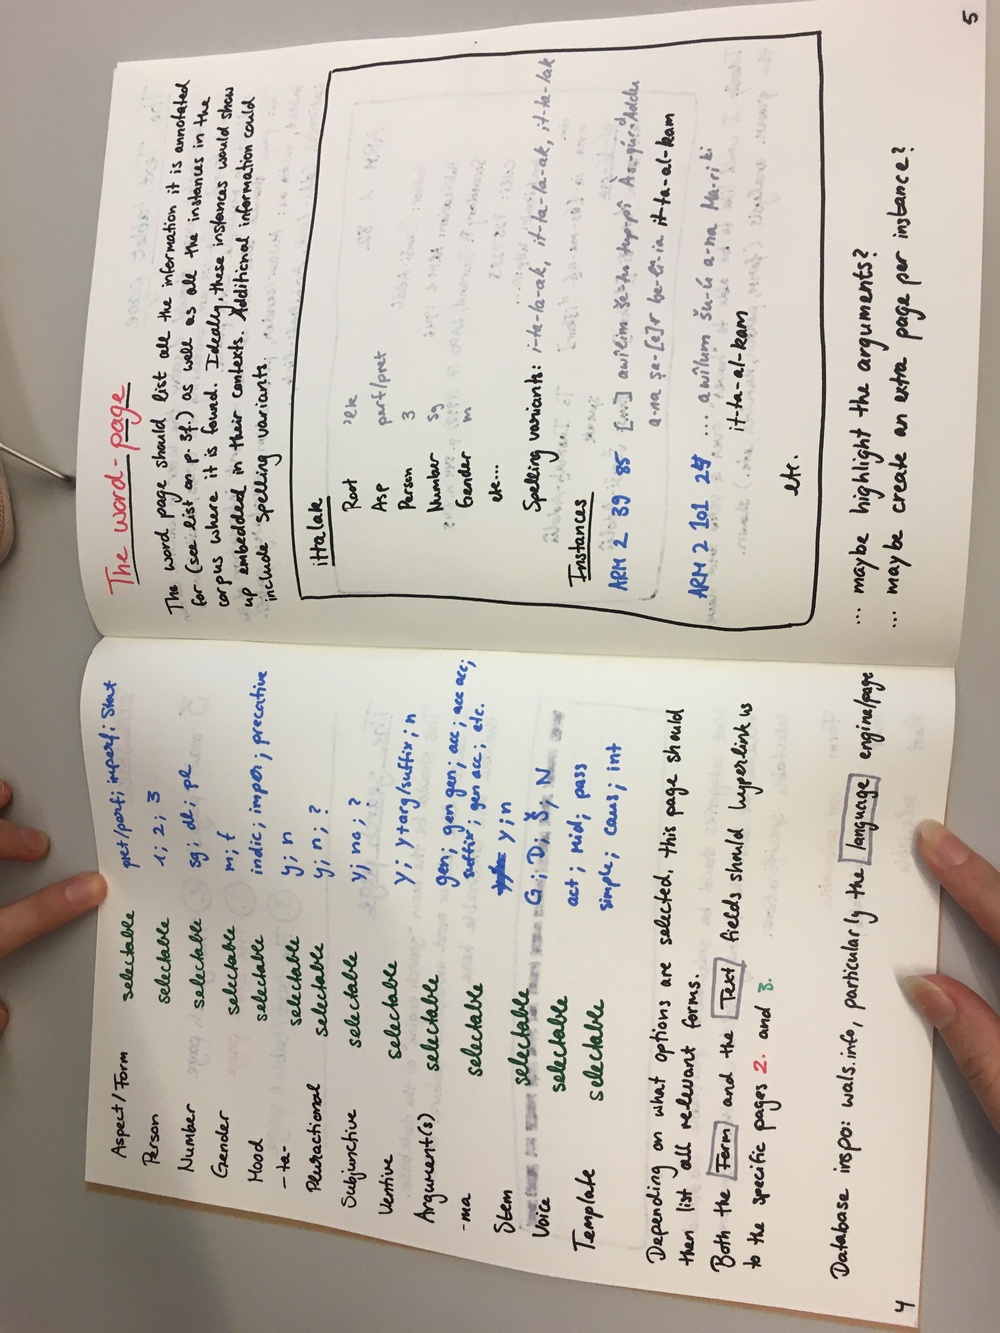 Aspect/Form selectable pret/perf; imperf; Stat
Person selectable 1; 2; 3
Number selectable sg; du; pl
Gender selectable m; f
Mood selectable indic; imper; precative
-ta- selectable y; n
Pluractional selectable y; n; ?
Subjunctive selectable y; no; ?
Ventive selectable y; y + arg/suffix; n
Argument(s) selectable gen; gen gen; acc; acc acc;
suffix; gen acc; etc.
-ma selectable y; n
Stem selectable G; D; Š; N
Voice selectable act; mid; pass
Template selectable simple; caus; int
Depending on what options are selected, this page should
then list all relevant forms.
Both the Form and the Text fields should hyperlink us
to the specific pages 2. and 3.
Database inspo: wals.info, particularly the language engine/page
4
The word-page
The word page should list all the information it is annotated
for (see list on p. 3f.) as well as all the instances in the
corpus where it is found. Ideally, these instances would show
up embedded in their contexts. Additional information could
include spelling variants.
ittalak
Root ʾlk
Asp perf/pret
Person 3
Number sg
Gender m
etc...
Spelling variants: i-ta-la-ak, it-ta-la-ak, it-ta-lak
Instances
ARM 2 39 85 [...] awīlim ṭuppi
a-na be-lí-ia it-ta-al-kam
ARM 2 101 24 ... awīlum šu-ú a-na Ma-ri ki
it-ta-al-kam
etc.
... maybe highlight the arguments?
... maybe create an extra page per instance?
5